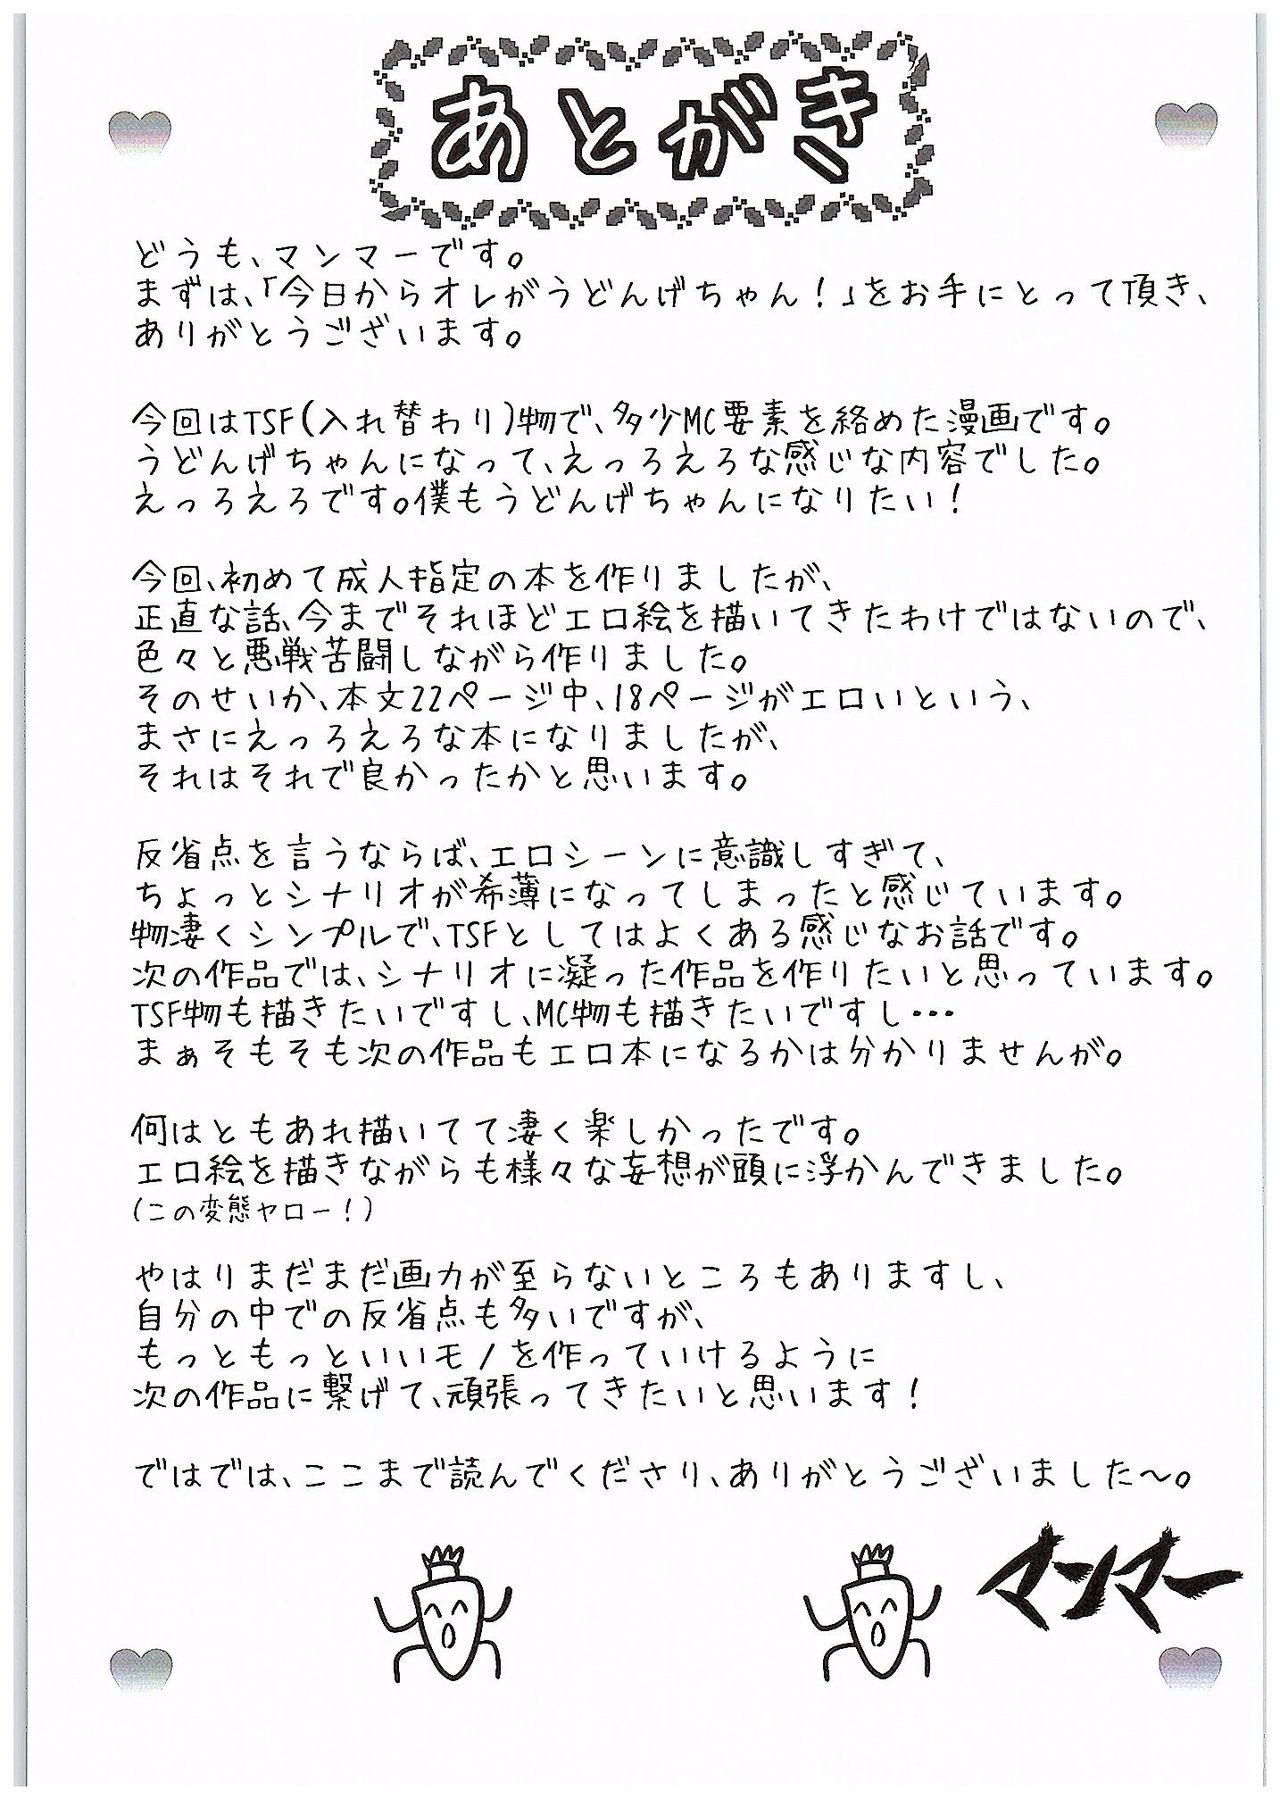 あとがき
どうも、マンマーです。
まずは、「今日からオレがうどんげちゃん！」をお手にとって頂き、
ありがとうございます。
今回はTSF(入れ替わり)物で、多少MC要素を絡めた漫画です。
うどんげちゃんになって、えっろえろな感じな内容でした。
えっろえろです。僕もうどんげちゃんになりたい！
今回、初めて成人指定の本を作りましたが、
正直な話、今までそれほどエロ絵を描いてきたわけではないので、
色々と悪戦苦闘しながら作りました。
そのせいか、本文22ページ中、18ページがエロいという、
まさにえっろえろな本になりましたが、
それはそれで良かったかと思います。
反省点を言うならば、エロシーンに意識しすぎて、
ちょっとシナリオが希薄になってしまったと感じています。
物凄くシンプルで、TSFとしてはよくある感じなお話です。
次の作品では、シナリオに凝った作品を作りたいと思っています。
TSF物も描きたいですし、MC物も描きたいですし・・・
まぁそもそも次の作品もエロ本になるかは分かりませんが。
何はともあれ描いてて凄く楽しかったです。
エロ絵を描きながらも様々な妄想が頭に浮かんできました。
(この変態ヤロー！)
やはりまだまだ画力が至らないところもありますし、
自分の中での反省点も多いですが、
もっともっといいモノを作っていけるように
次の作品に繋げて、頑張ってきたいと思います！
ではでは、ここまで読んでくださり、ありがとうございました～。
マンマー